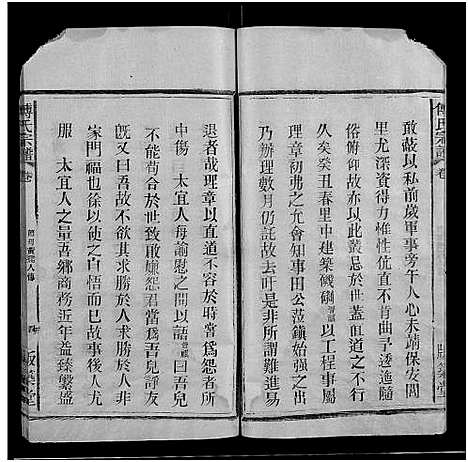 敢蔽以私前歲軍事旁午人心未靖保安閭
里尤深資得力惟性伉直不肯曲㝷迯隨
俗俯仰故亦以此叢忌於世蓋直道之不行
久矣癸丑春里中建築碉以工程事屬
理章初弗之允會知事田公蒞鎭始强之出
乃辦理數月仍託故去吁是非所謂難進易
退者哉理章以直道不容於時當爲怨者所
中傷 太宜人每諭慰之間以語曰吾兒
不能苟合於世致敢嫌怨君當爲吾兒諍友
旣又曰吾故不欲其求勝於人求勝於人非
家門福也徐以使之抑然以是故事後人尤
服 太宜人之量吾鄉商務近年益臻繁盛
傅氏宗譜 卷
傅氏宗譜 卷
版築堂
版築堂